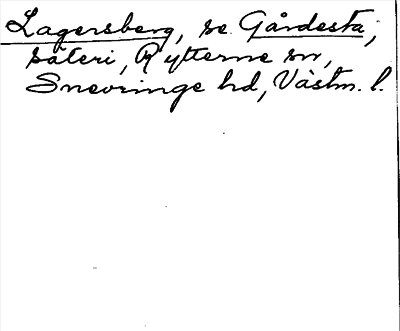 Lagersberg, se Gårdesta,
säteri, Rytterne sn,
Snevringe hd, Västm. l.